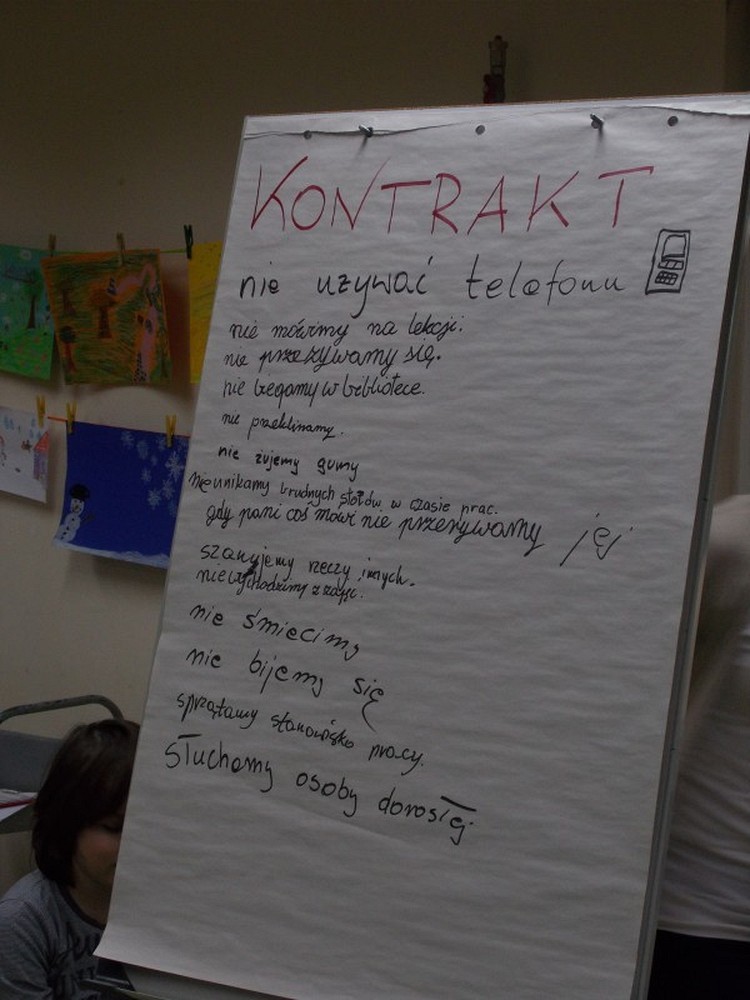 KONTRAKT
nie używać telefonu
nie mówimy na lekcji.
nie przezywamy się.
nie biegamy w bibliotece.
nie przeklinamy.
nie żujemy gumy
nie unikamy trudnych słotów w czasie prac.
gdy pani coś mówi nie przerywamy jej
szanujemy rzeczy innych.
nie wychodzimy z zajęć.
nie śmiecimy
nie bijemy się
sprzątamy stanowisko pracy.
słuchamy osoby dorosłej